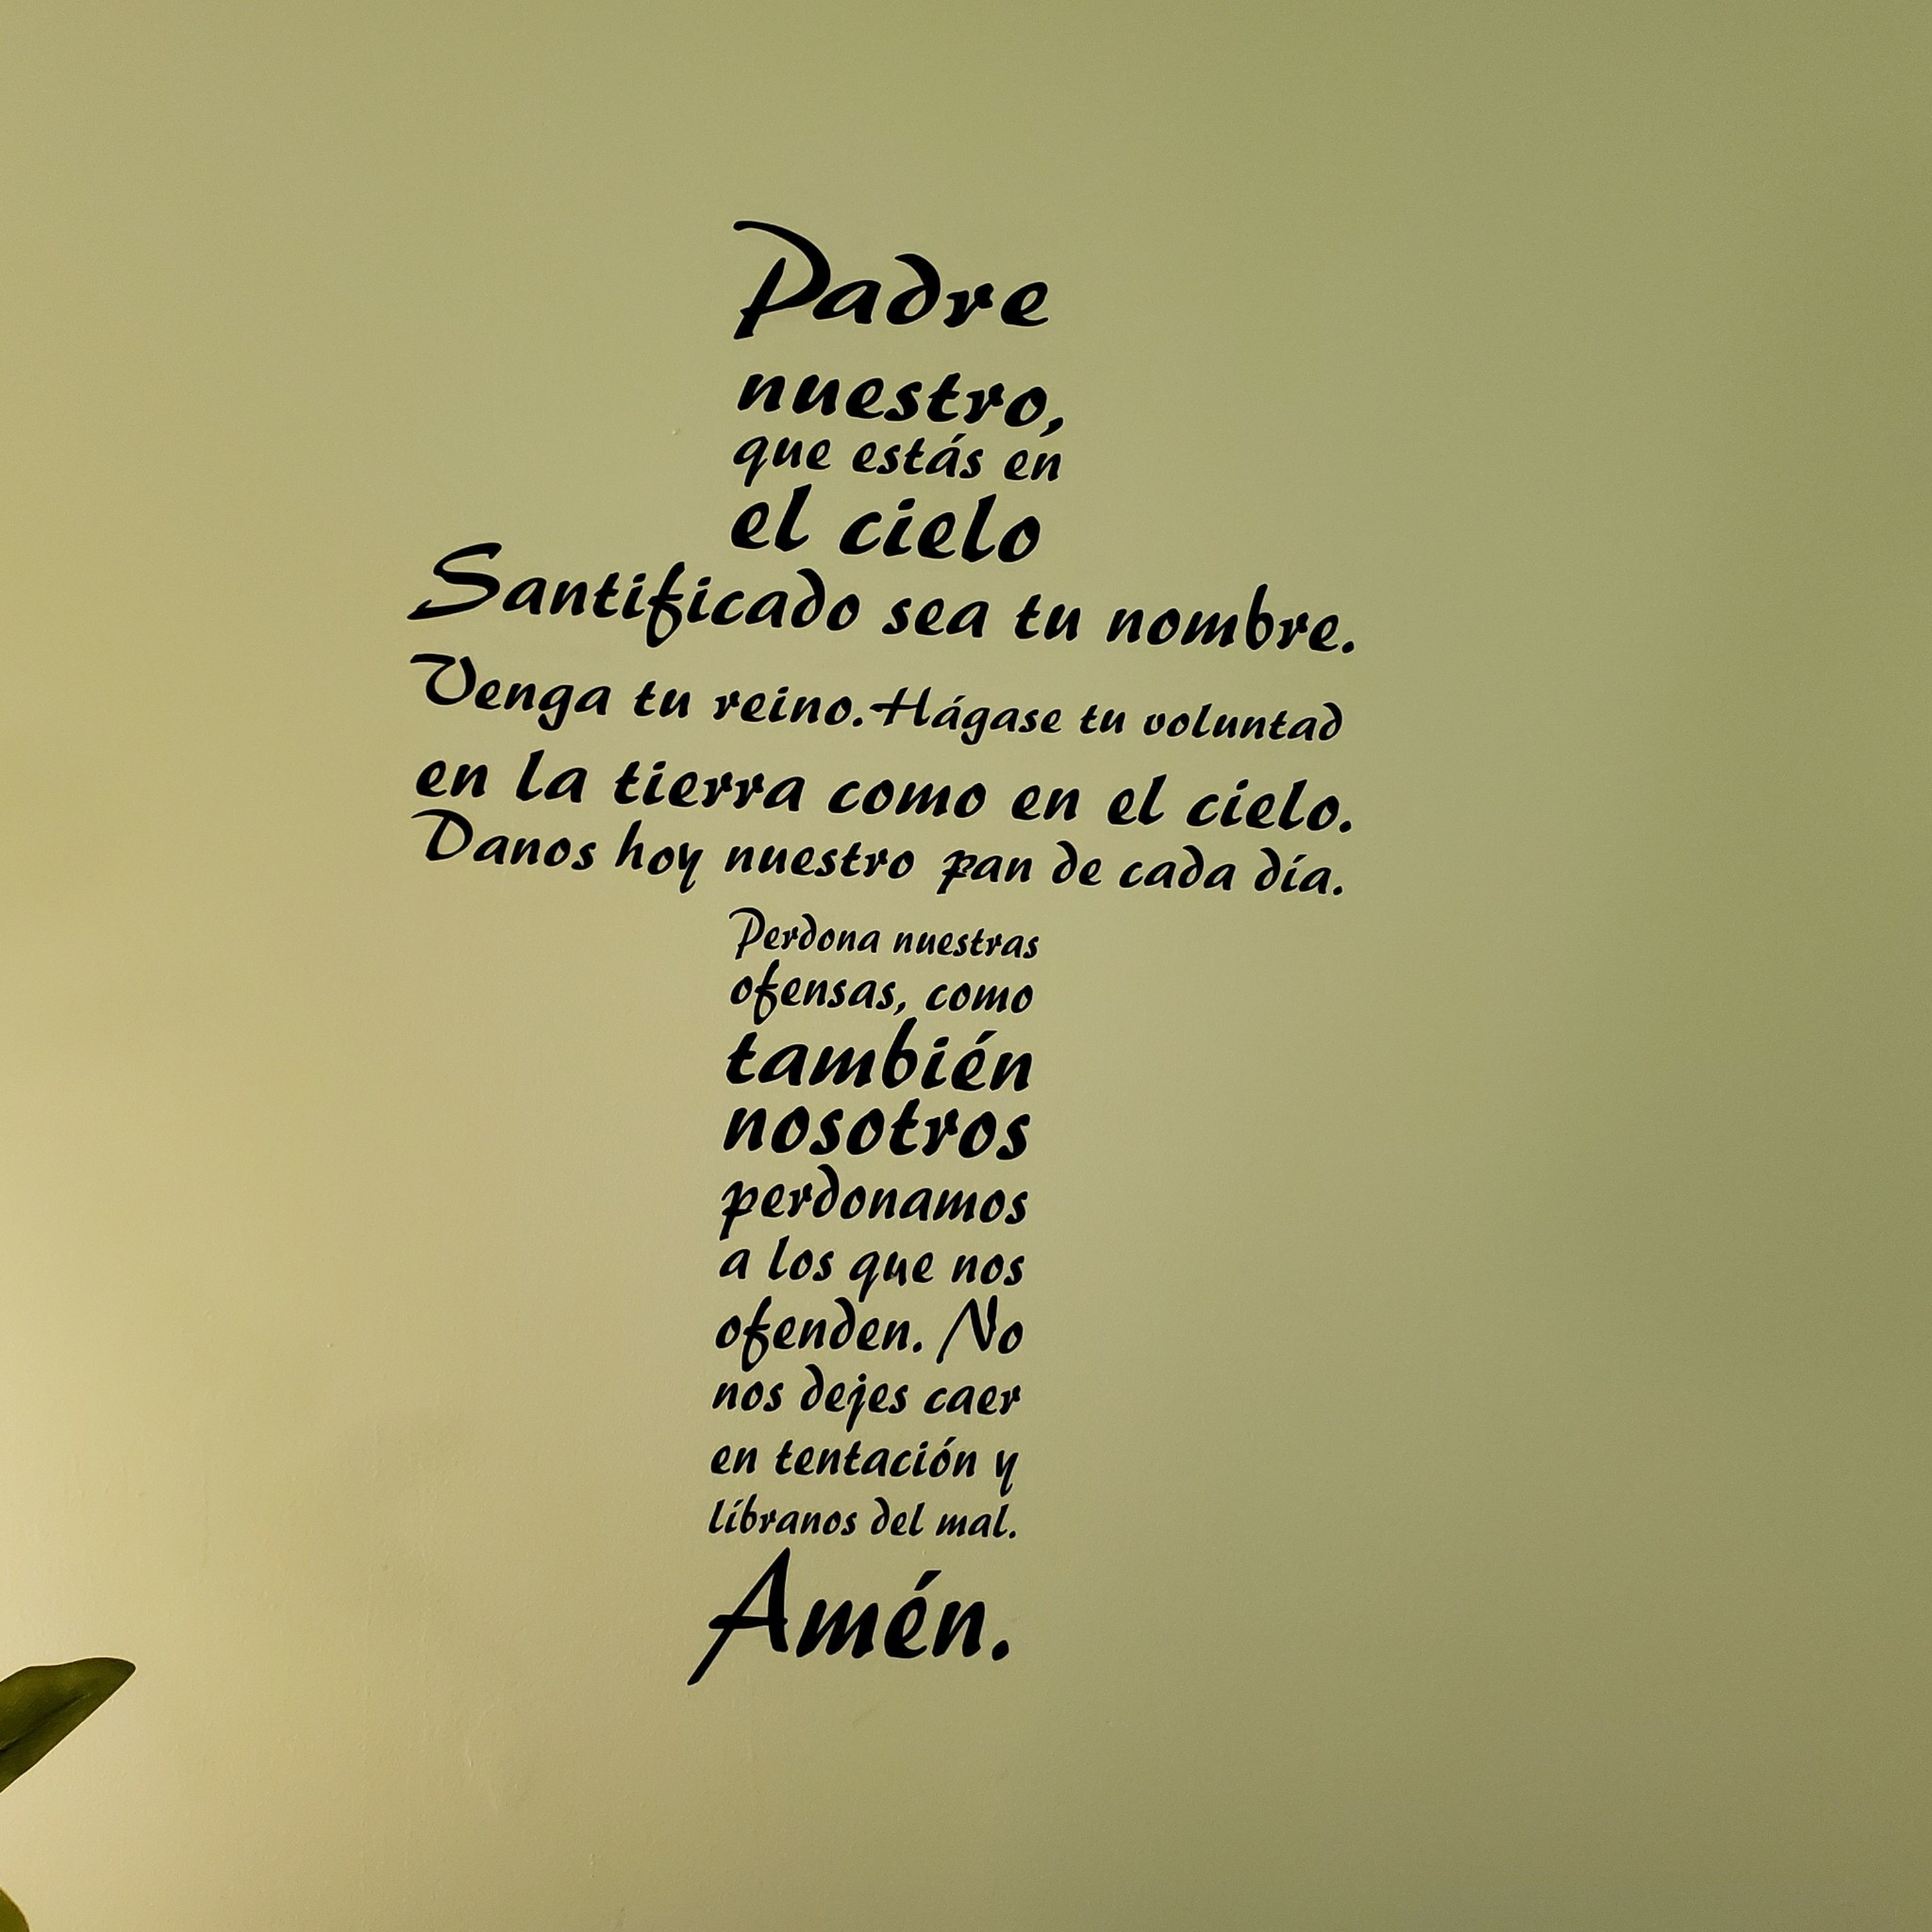 Padre
nuestro,
que estás en
el cielo
Santificado sea tu nombre.
Venga tu reino.Hágase tu voluntad
en la tierra como en el cielo.
Danos hoy nuestro pan de cada día.
Perdona nuestras
ofensas, como
también
nosotros
perdonamos
a los que nos
ofenden. No
nos dejes caer
en tentación y
líbranos del mal.
Amén.